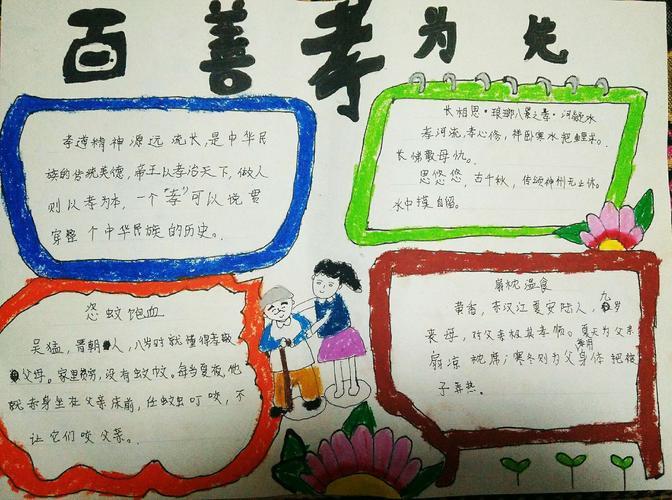 百善孝为先
孝道精神源远流长,是中华民
族的传统美德,帝王以孝治天下,做人
则以孝为本,一个“孝”可以说贯
穿整个中华民族的历史。
长相思·琅琊八景之孝·河凝水
孝河流,孝心修,祥卧寒水把鲤求。
长悌歌母忧。
思悠悠,古千秋,传颂神州无止休。
水中摸自留。
恣蚊饱血
吴猛,晋朝人,八岁时就懂得孝敬
父母。家里贫穷,没有蚊帐。每当夏夜,他
就赤身坐在父亲床前,任蚊虫叮咬,不
让它们咬父亲。
扇枕温食
黄香,东汉江夏安陆人,九岁
丧母,对父亲极其孝顺。夏天为父亲
扇凉枕席;寒冬则为父亲用身体把被
子弄热。